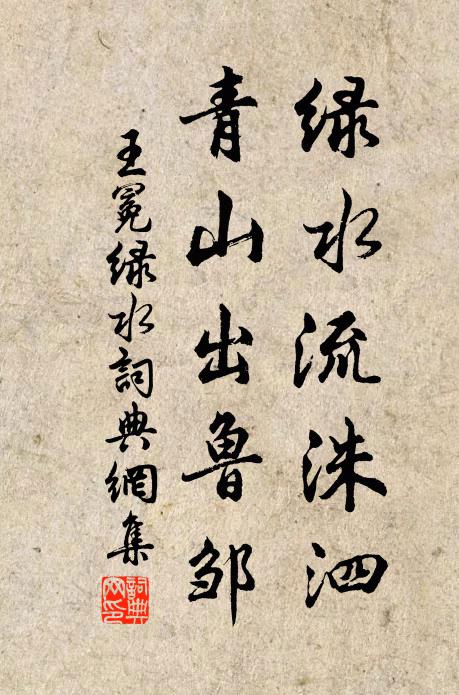 绿水流洙泗
青山出魯邹
王冕绿水詞典網集
詞典網印